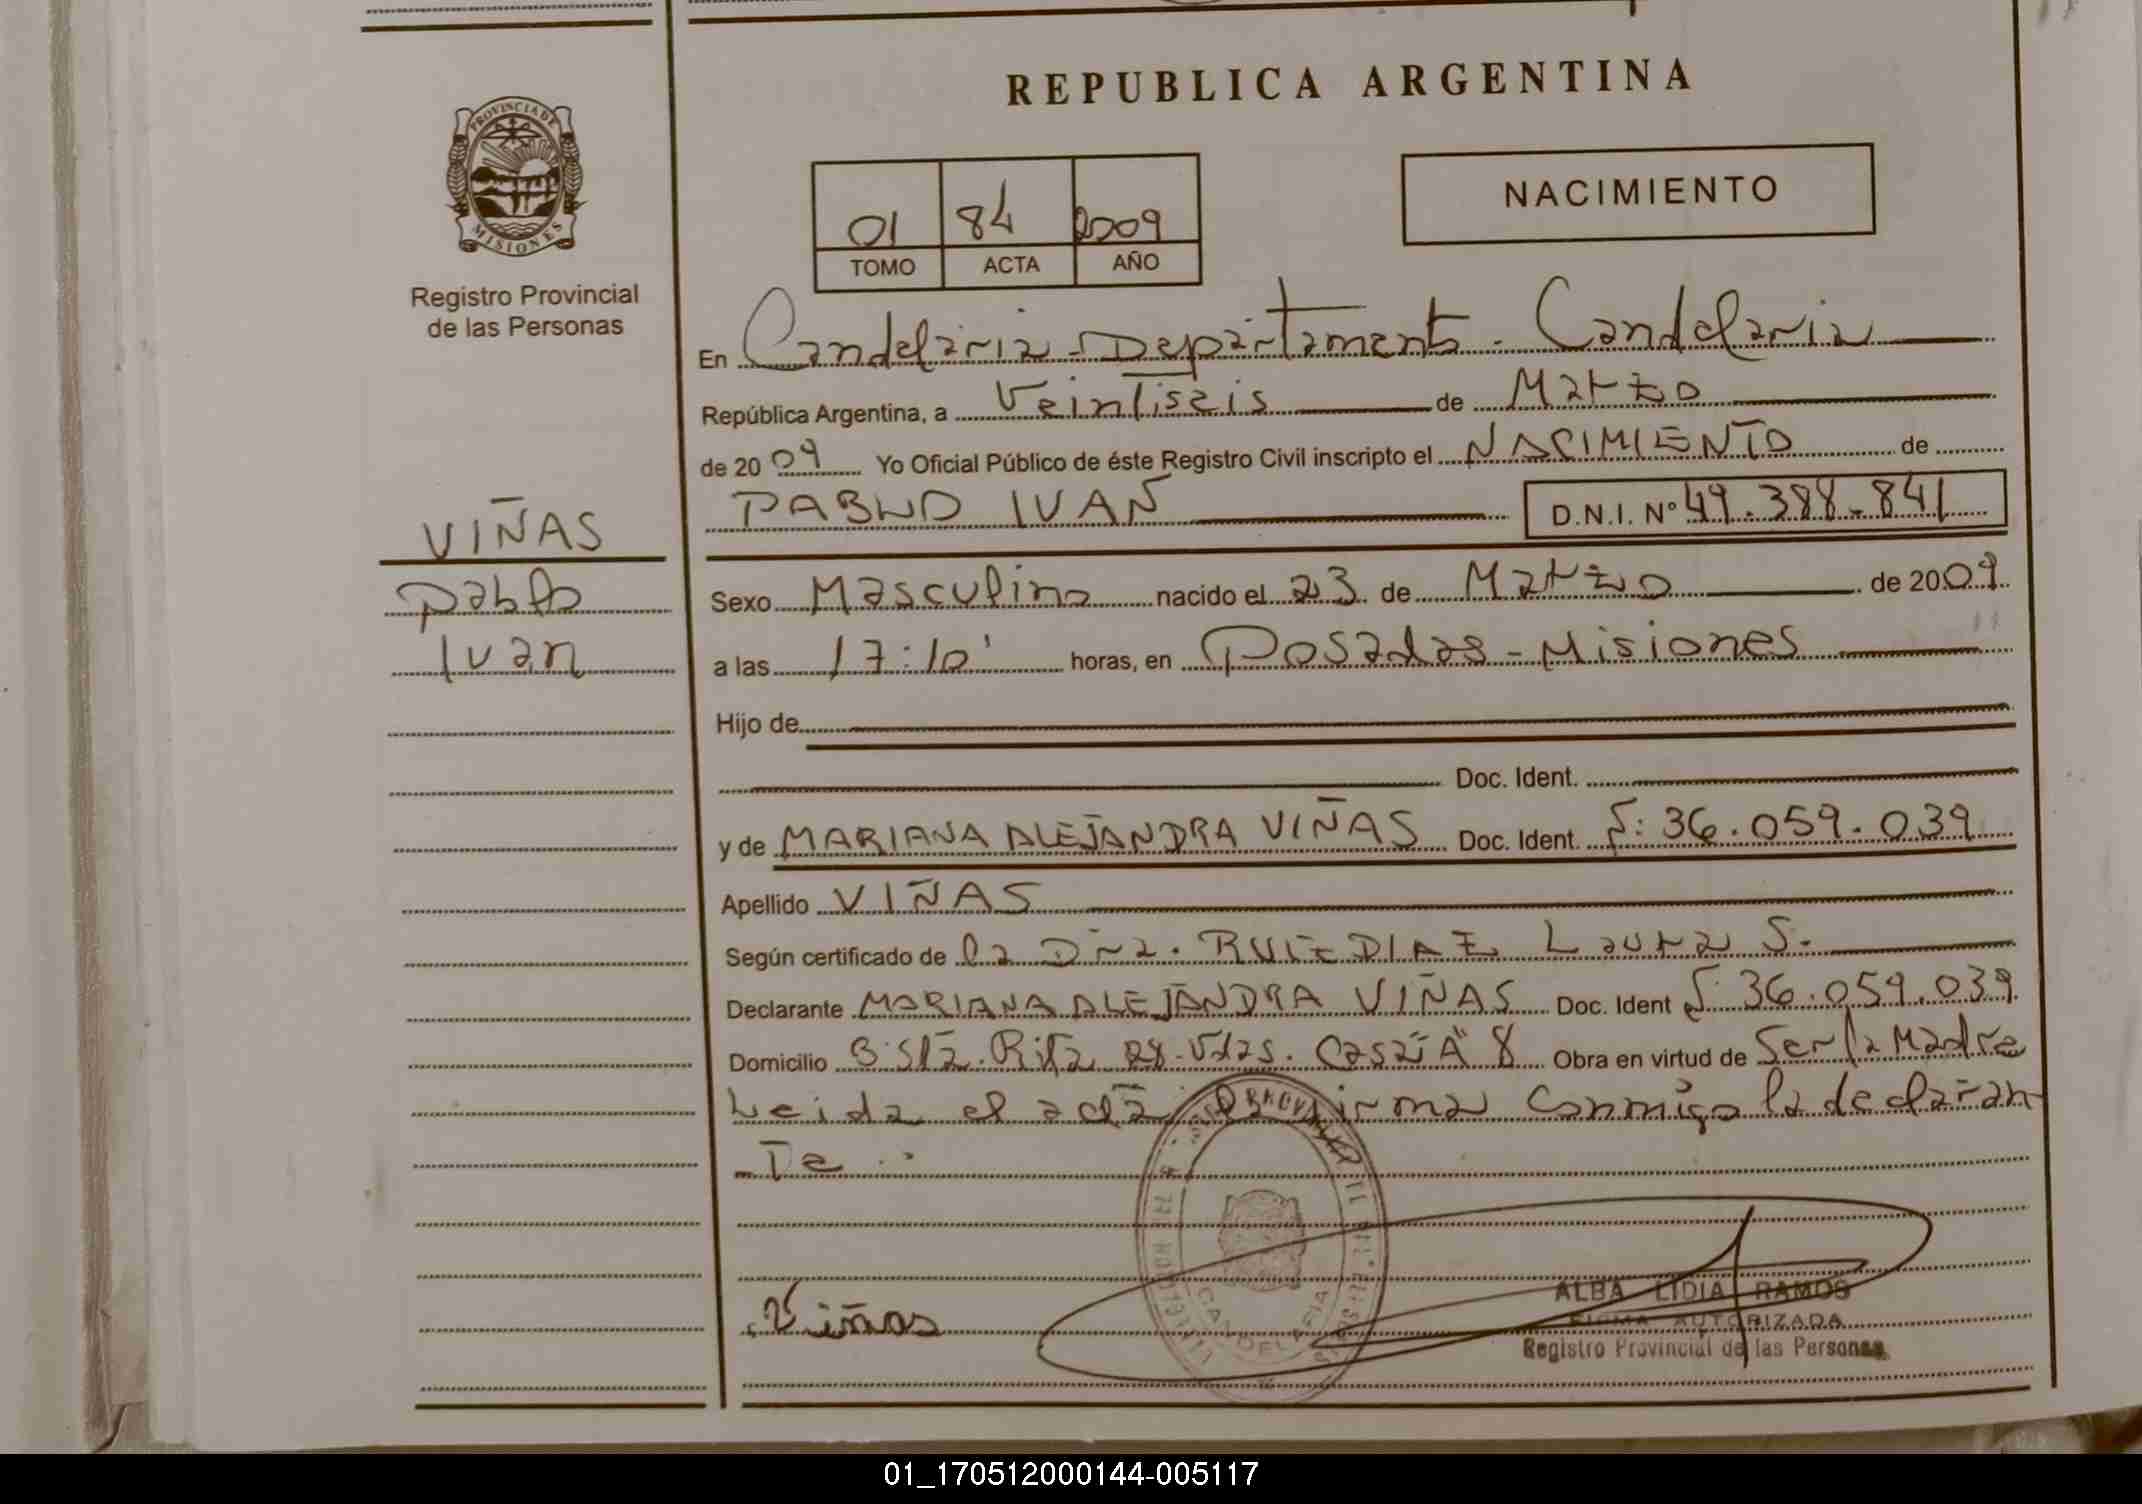 REPUBLICA ARGENTINA
PROVINCIA DE
MISIONES
Registro Provincial
de las Personas
01 84 2009
TOMO ACTA AÑO
NACIMIENTO
En Candelaria - Departamento - Candelaria
República Argentina, a Veintiseis de Marzo
de 2009 Yo Oficial Público de éste Registro Civil inscripto el NACIMIENTO de
PABLO IVAN D.N.I. N° 49.388.841
VIÑAS
Pablo
Ivan
Sexo Masculino nacido el 23 de Marzo de 2009
a las 17:10' horas, en Posadas - Misiones
Hijo de
Doc. Ident.
y de MARIANA ALEJANDRA VIÑAS Doc. Ident. 36.059.039
Apellido VIÑAS
Según certificado de la Dra. RUIZ DIAZ Laura S.
Declarante MARIANA ALEJANDRA VIÑAS Doc. Ident 36.059.039
Domicilio B° Sta. Rita 28 Vdas. Casa "A" 8 Obra en virtud de Ser la Madre
Leida el acta la firma conmigo la declaran-
te
Viñas
CANDELARIA
ALBA LIDIA RAMOS
FIRMA AUTORIZADA
Registro Provincial de las Personas
01_170512000144-005117